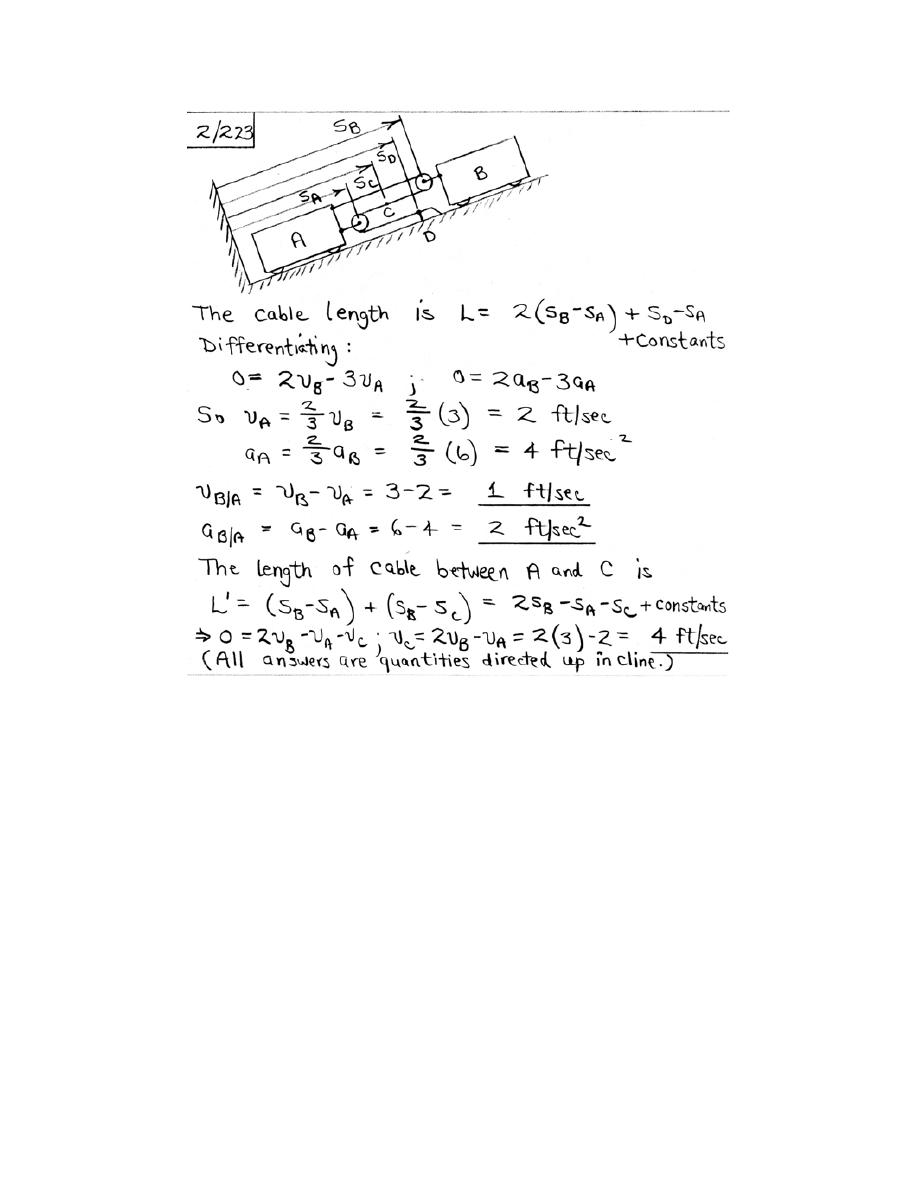 2/223
SB
SD
SC
SA
C
B
A
D
The cable length is L = 2(SB-SA) + SD-SA
+constants
Differentiating:
0 = 2vB - 3vA ; 0 = 2aB - 3aA
So vA = 2/3 vB = 2/3 (3) = 2 ft/sec
aA = 2/3 aB = 2/3 (6) = 4 ft/sec²
vB/A = vB - vA = 3-2 = 1 ft/sec
aB/A = aB - aA = 6-4 = 2 ft/sec²
The length of cable between A and C is
L' = (SB-SA) + (SB-SC) = 2SB-SA-SC + constants
⇒ 0 = 2vB-vA-vC ; vC = 2vB-vA = 2(3)-2 = 4 ft/sec
(All answers are quantities directed up incline.)